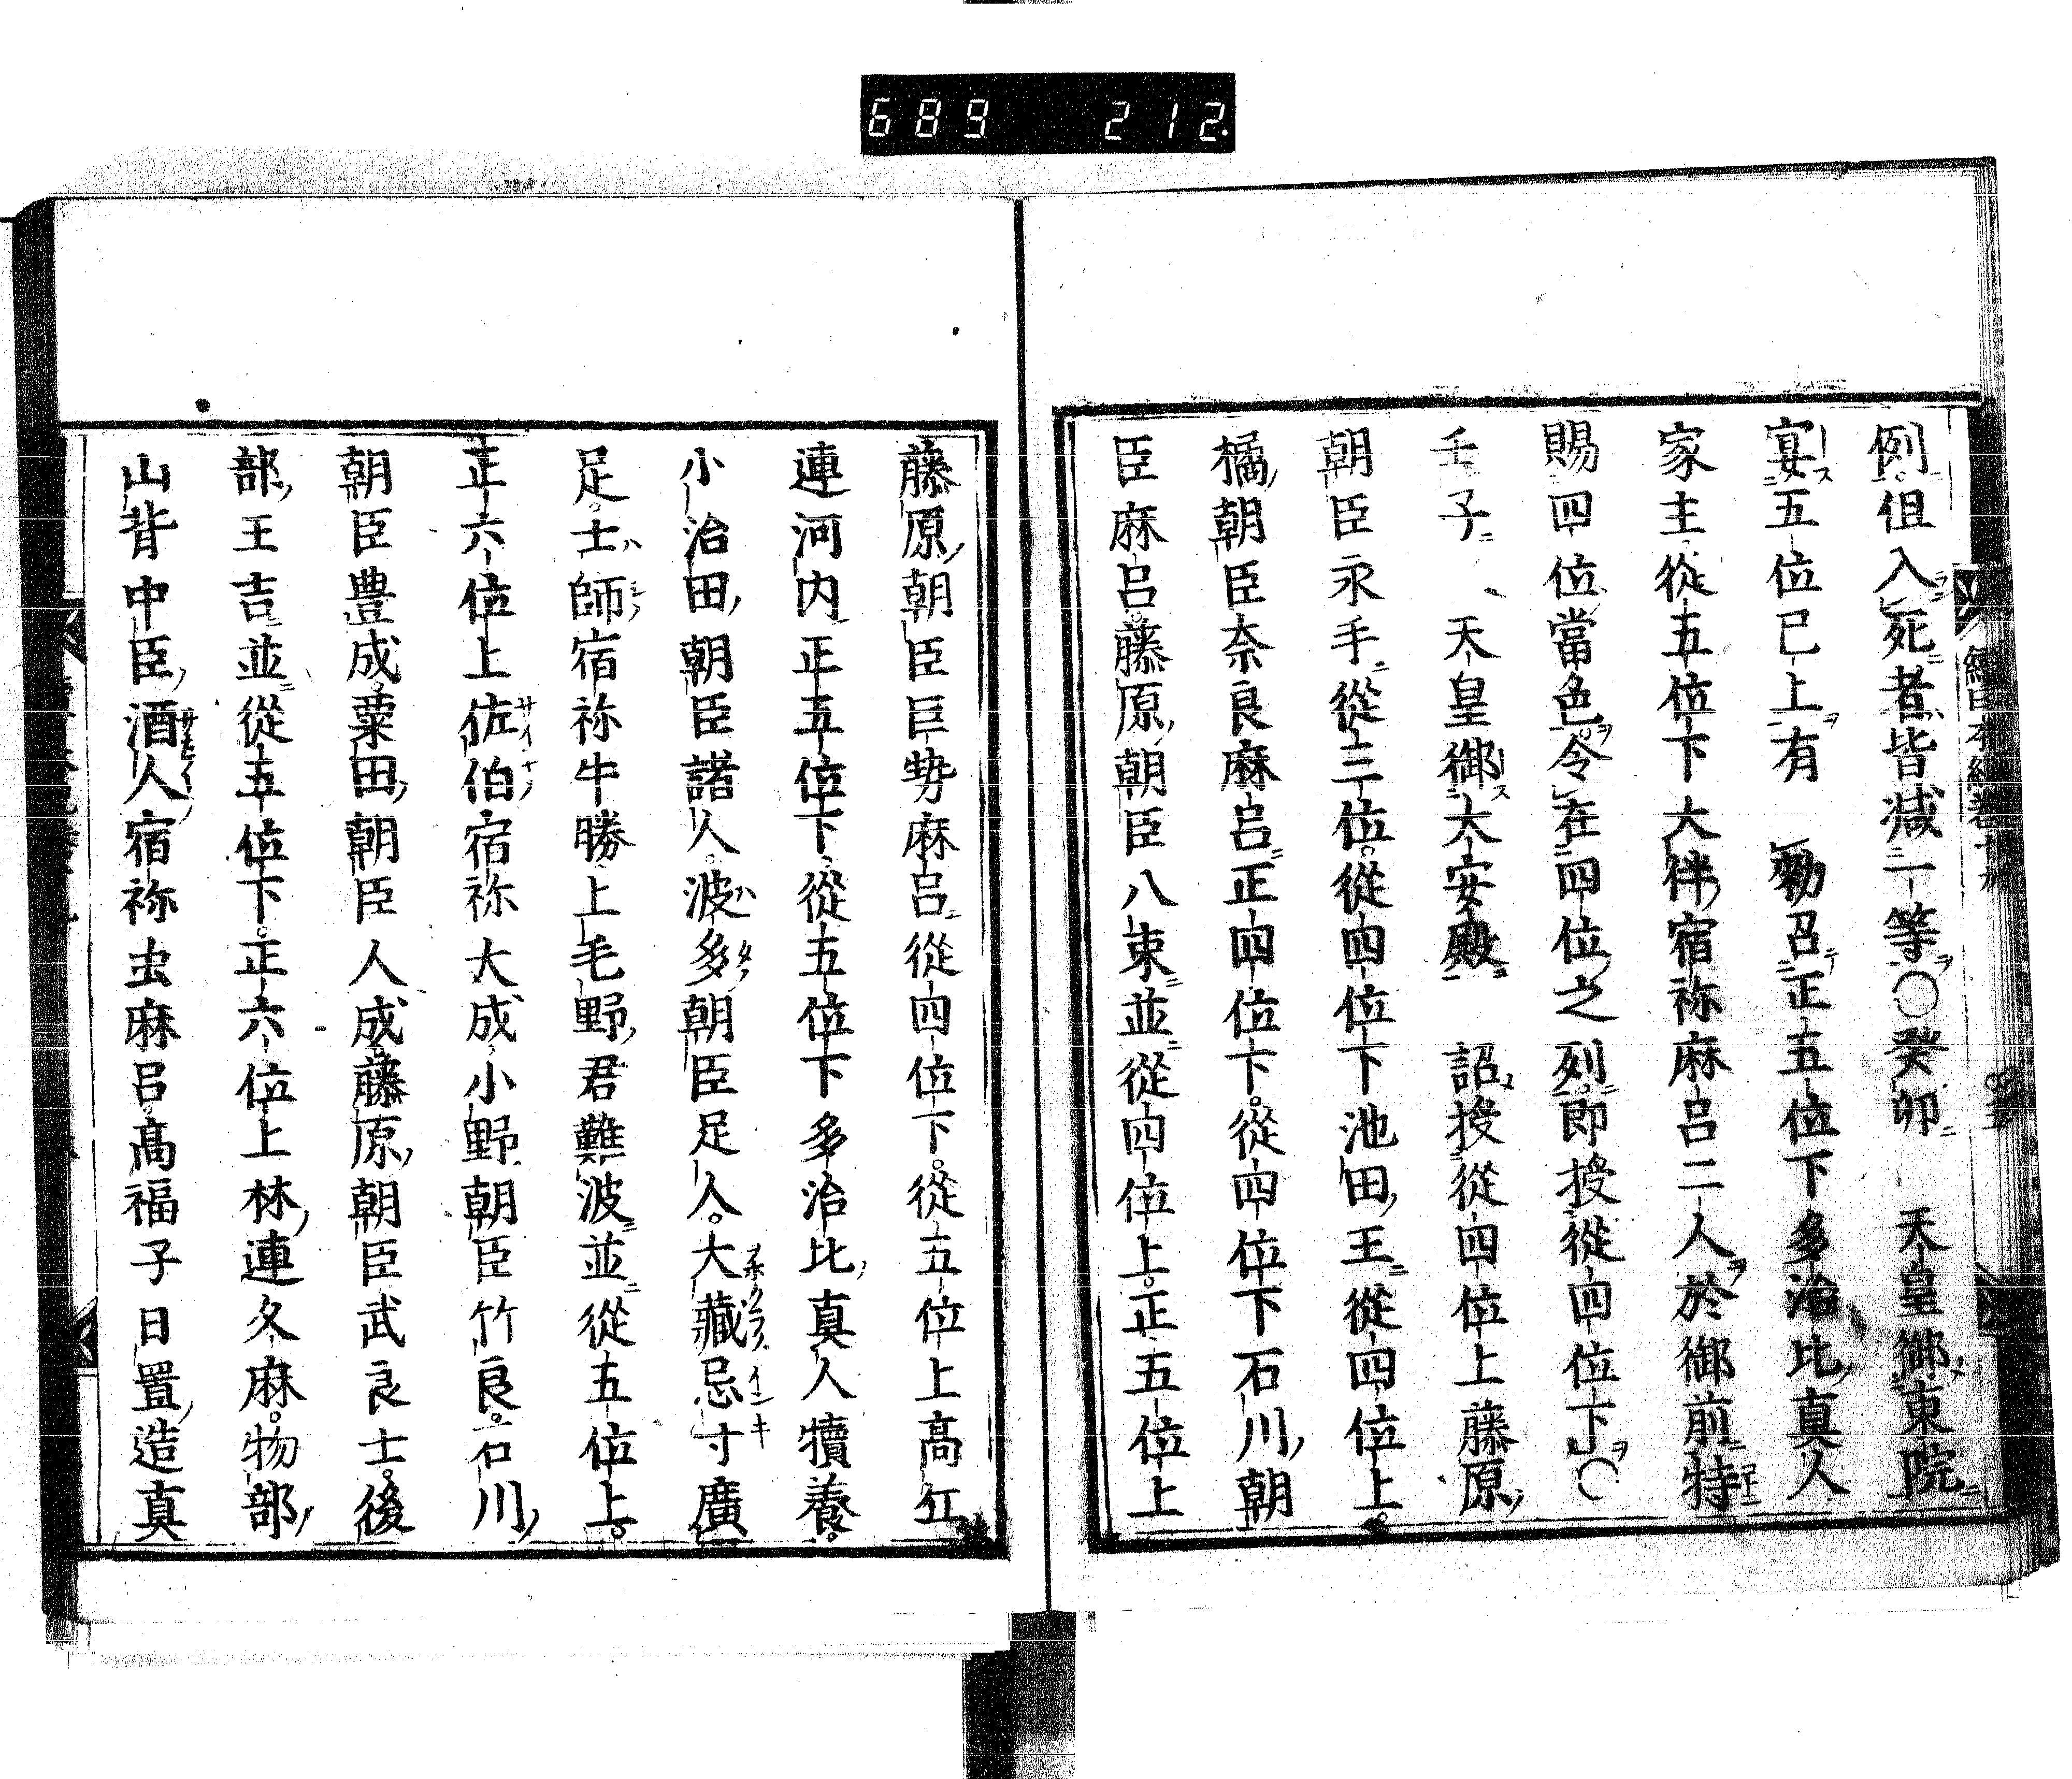 689 212
例但入死者皆減一等〇癸卯 天皇御東院
宴五位已上有 勅召正五位下多治比真人
家主從五位下大伴宿祢麻呂二人於御前特
賜四位當色令在四位之列即授從四位下〇
壬子 天皇御大安殿 詔授從四位上藤原
朝臣永手從三位從四位下池田王從四位上
橘朝臣奈良麻呂正四位下從四位下石川朝
臣麻呂藤原朝臣八束並從四位上正五位上
藤原朝臣巨勢麻呂從四位下從五位上高丘
連河内正五位下從五位下多治比真人犢養
小治田朝臣諸人波多朝臣足人大藏忌寸廣
足士師宿祢牛勝上毛野君難波並從五位上
正六位上佐伯宿祢大成小野朝臣竹良石川
朝臣豊成粟田朝臣人成藤原朝臣武良士後
部王吉並從五位下正六位上林連久麻物部
山背中臣酒人宿祢虫麻呂高福子日置造真